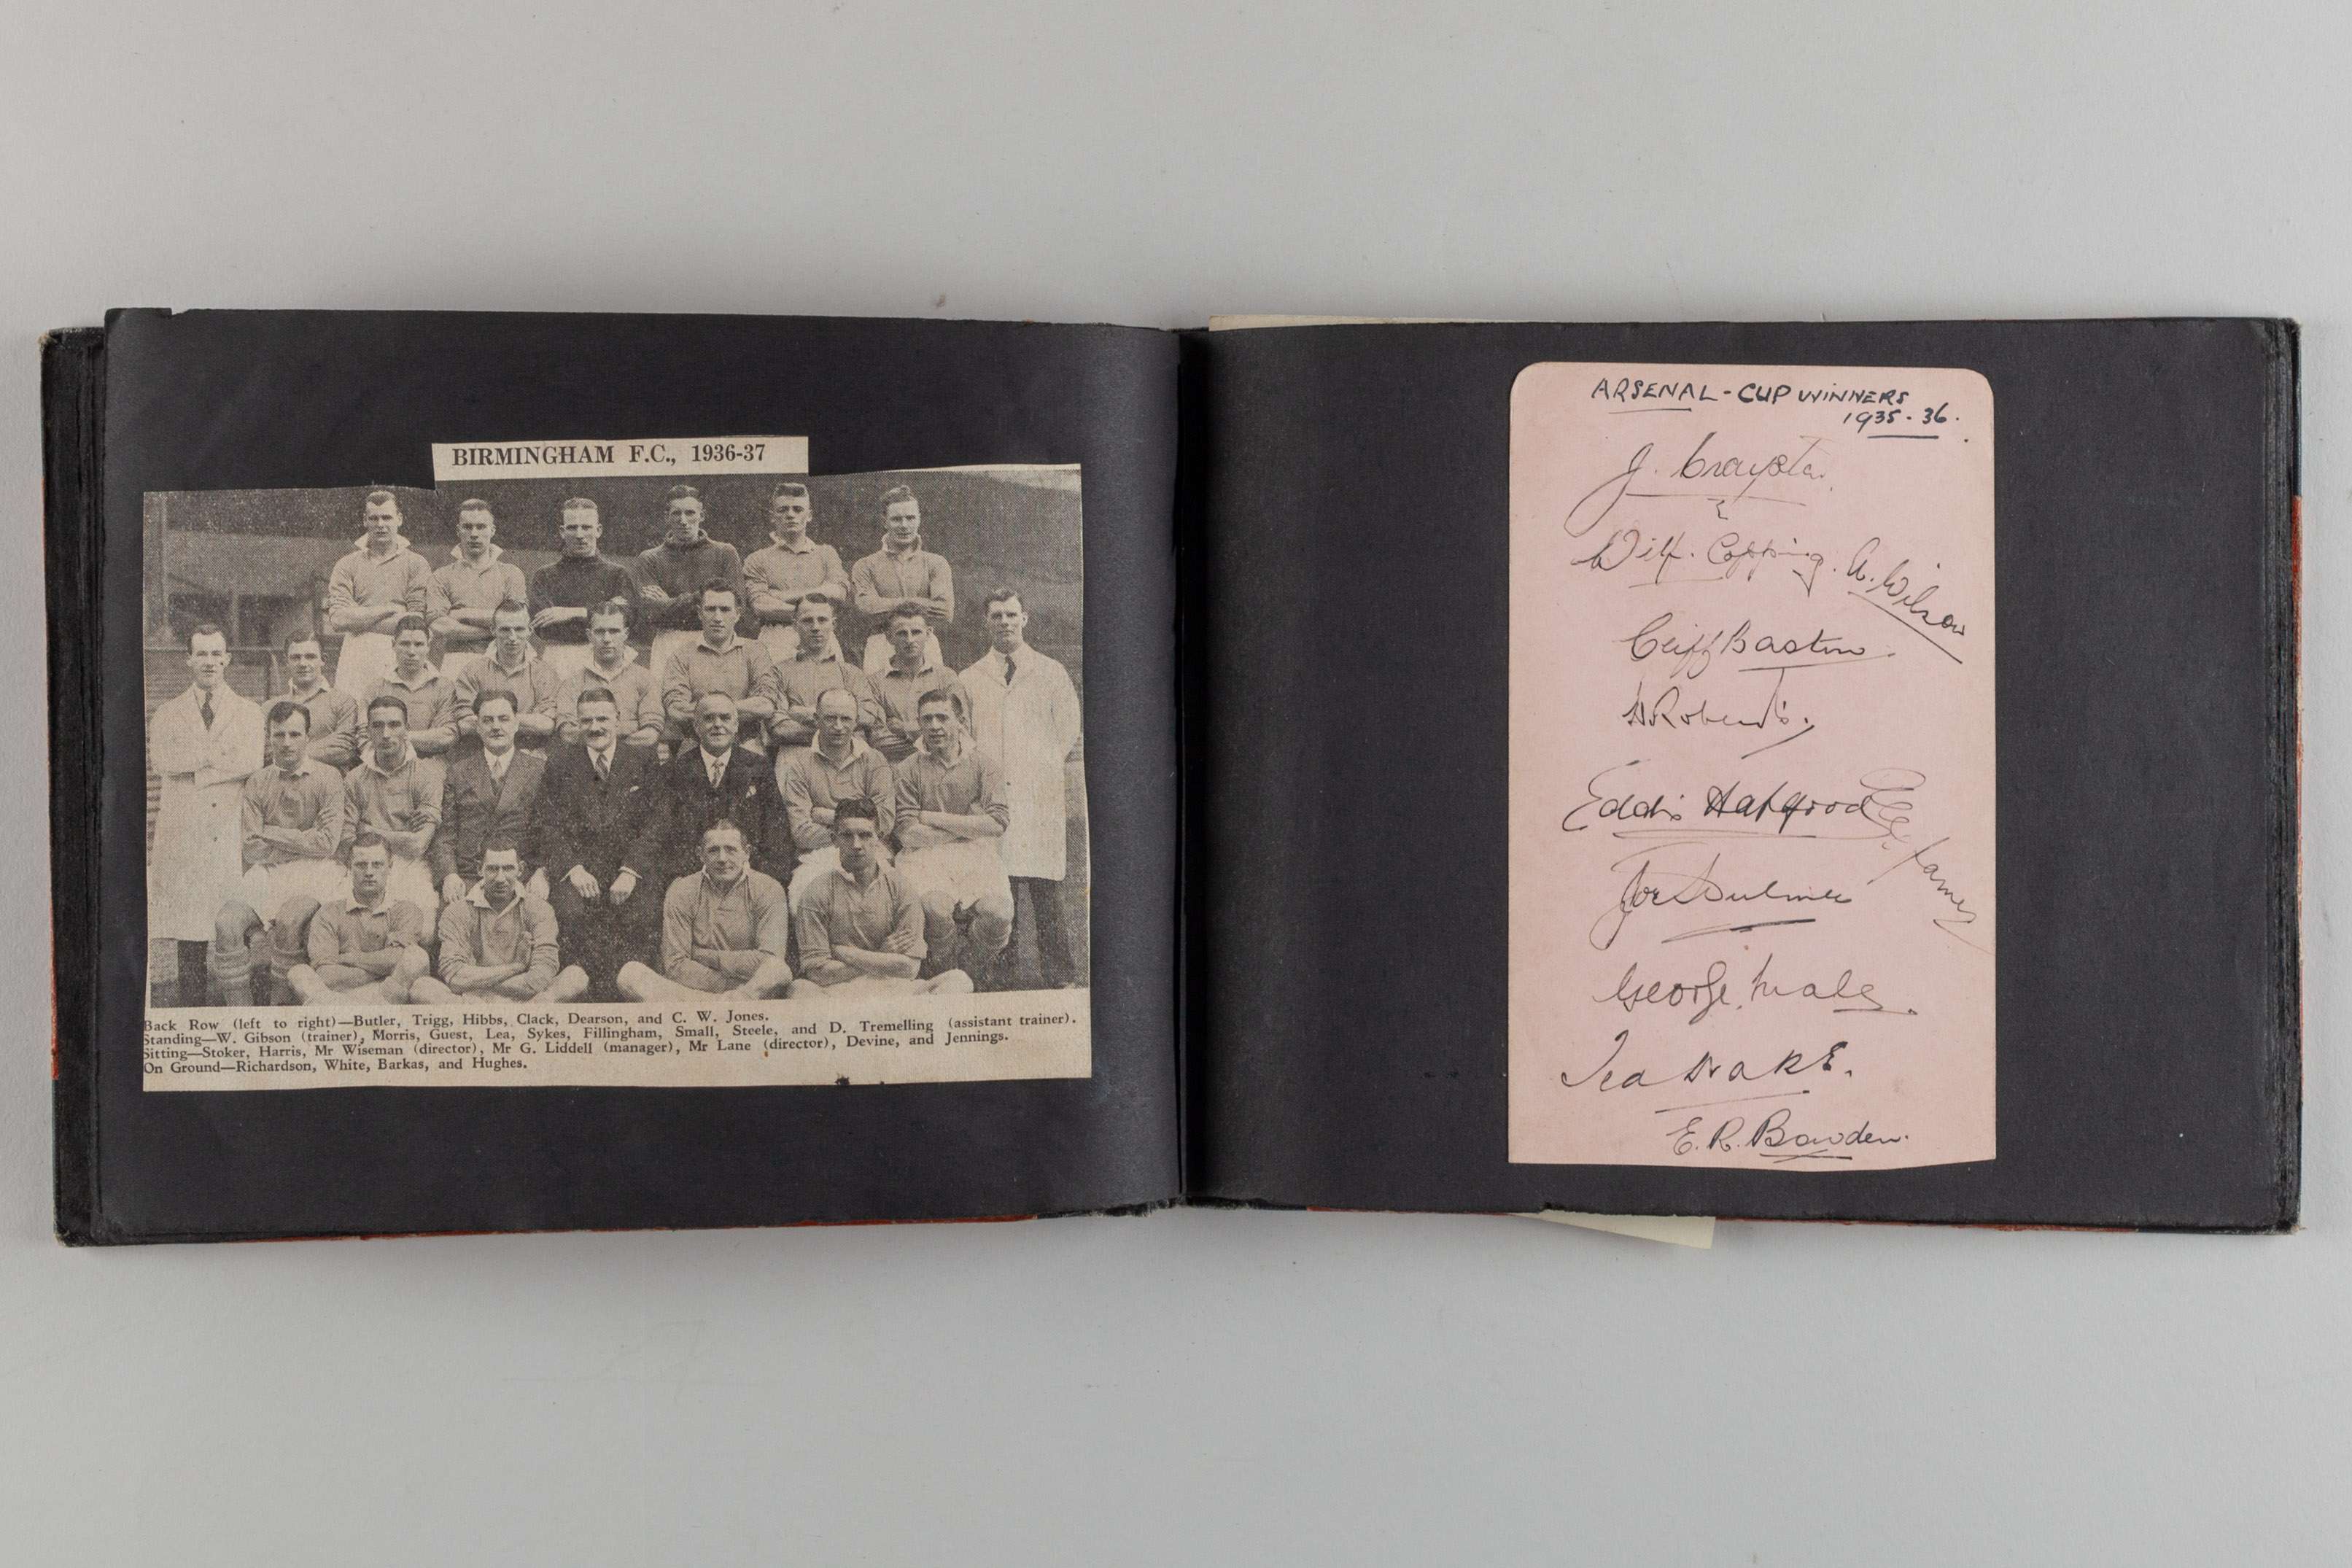 BIRMINGHAM F.C., 1936-37
Back Row (left to right)—Butler, Trigg, Hibbs, Clack, Dearson, and C. W. Jones.
Standing—W. Gibson (trainer), Morris, Guest, Lea, Sykes, Fillingham, Small, Steele, and D. Tremelling (assistant trainer).
Sitting—Stoker, Harris, Mr Wiseman (director), Mr G. Liddell (manager), Mr Lane (director), Devine, and Jennings.
On Ground—Richardson, White, Barkas, and Hughes.
ARSENAL - CUP WINNERS
1935-36.
J. Crayston.
Wilf. Copping. A. Wilson
Cliff Bastin.
H Roberts.
Eddie Hapgood
James
Joe Hulme
George Male.
Ted Drake.
E. R. Bowden.